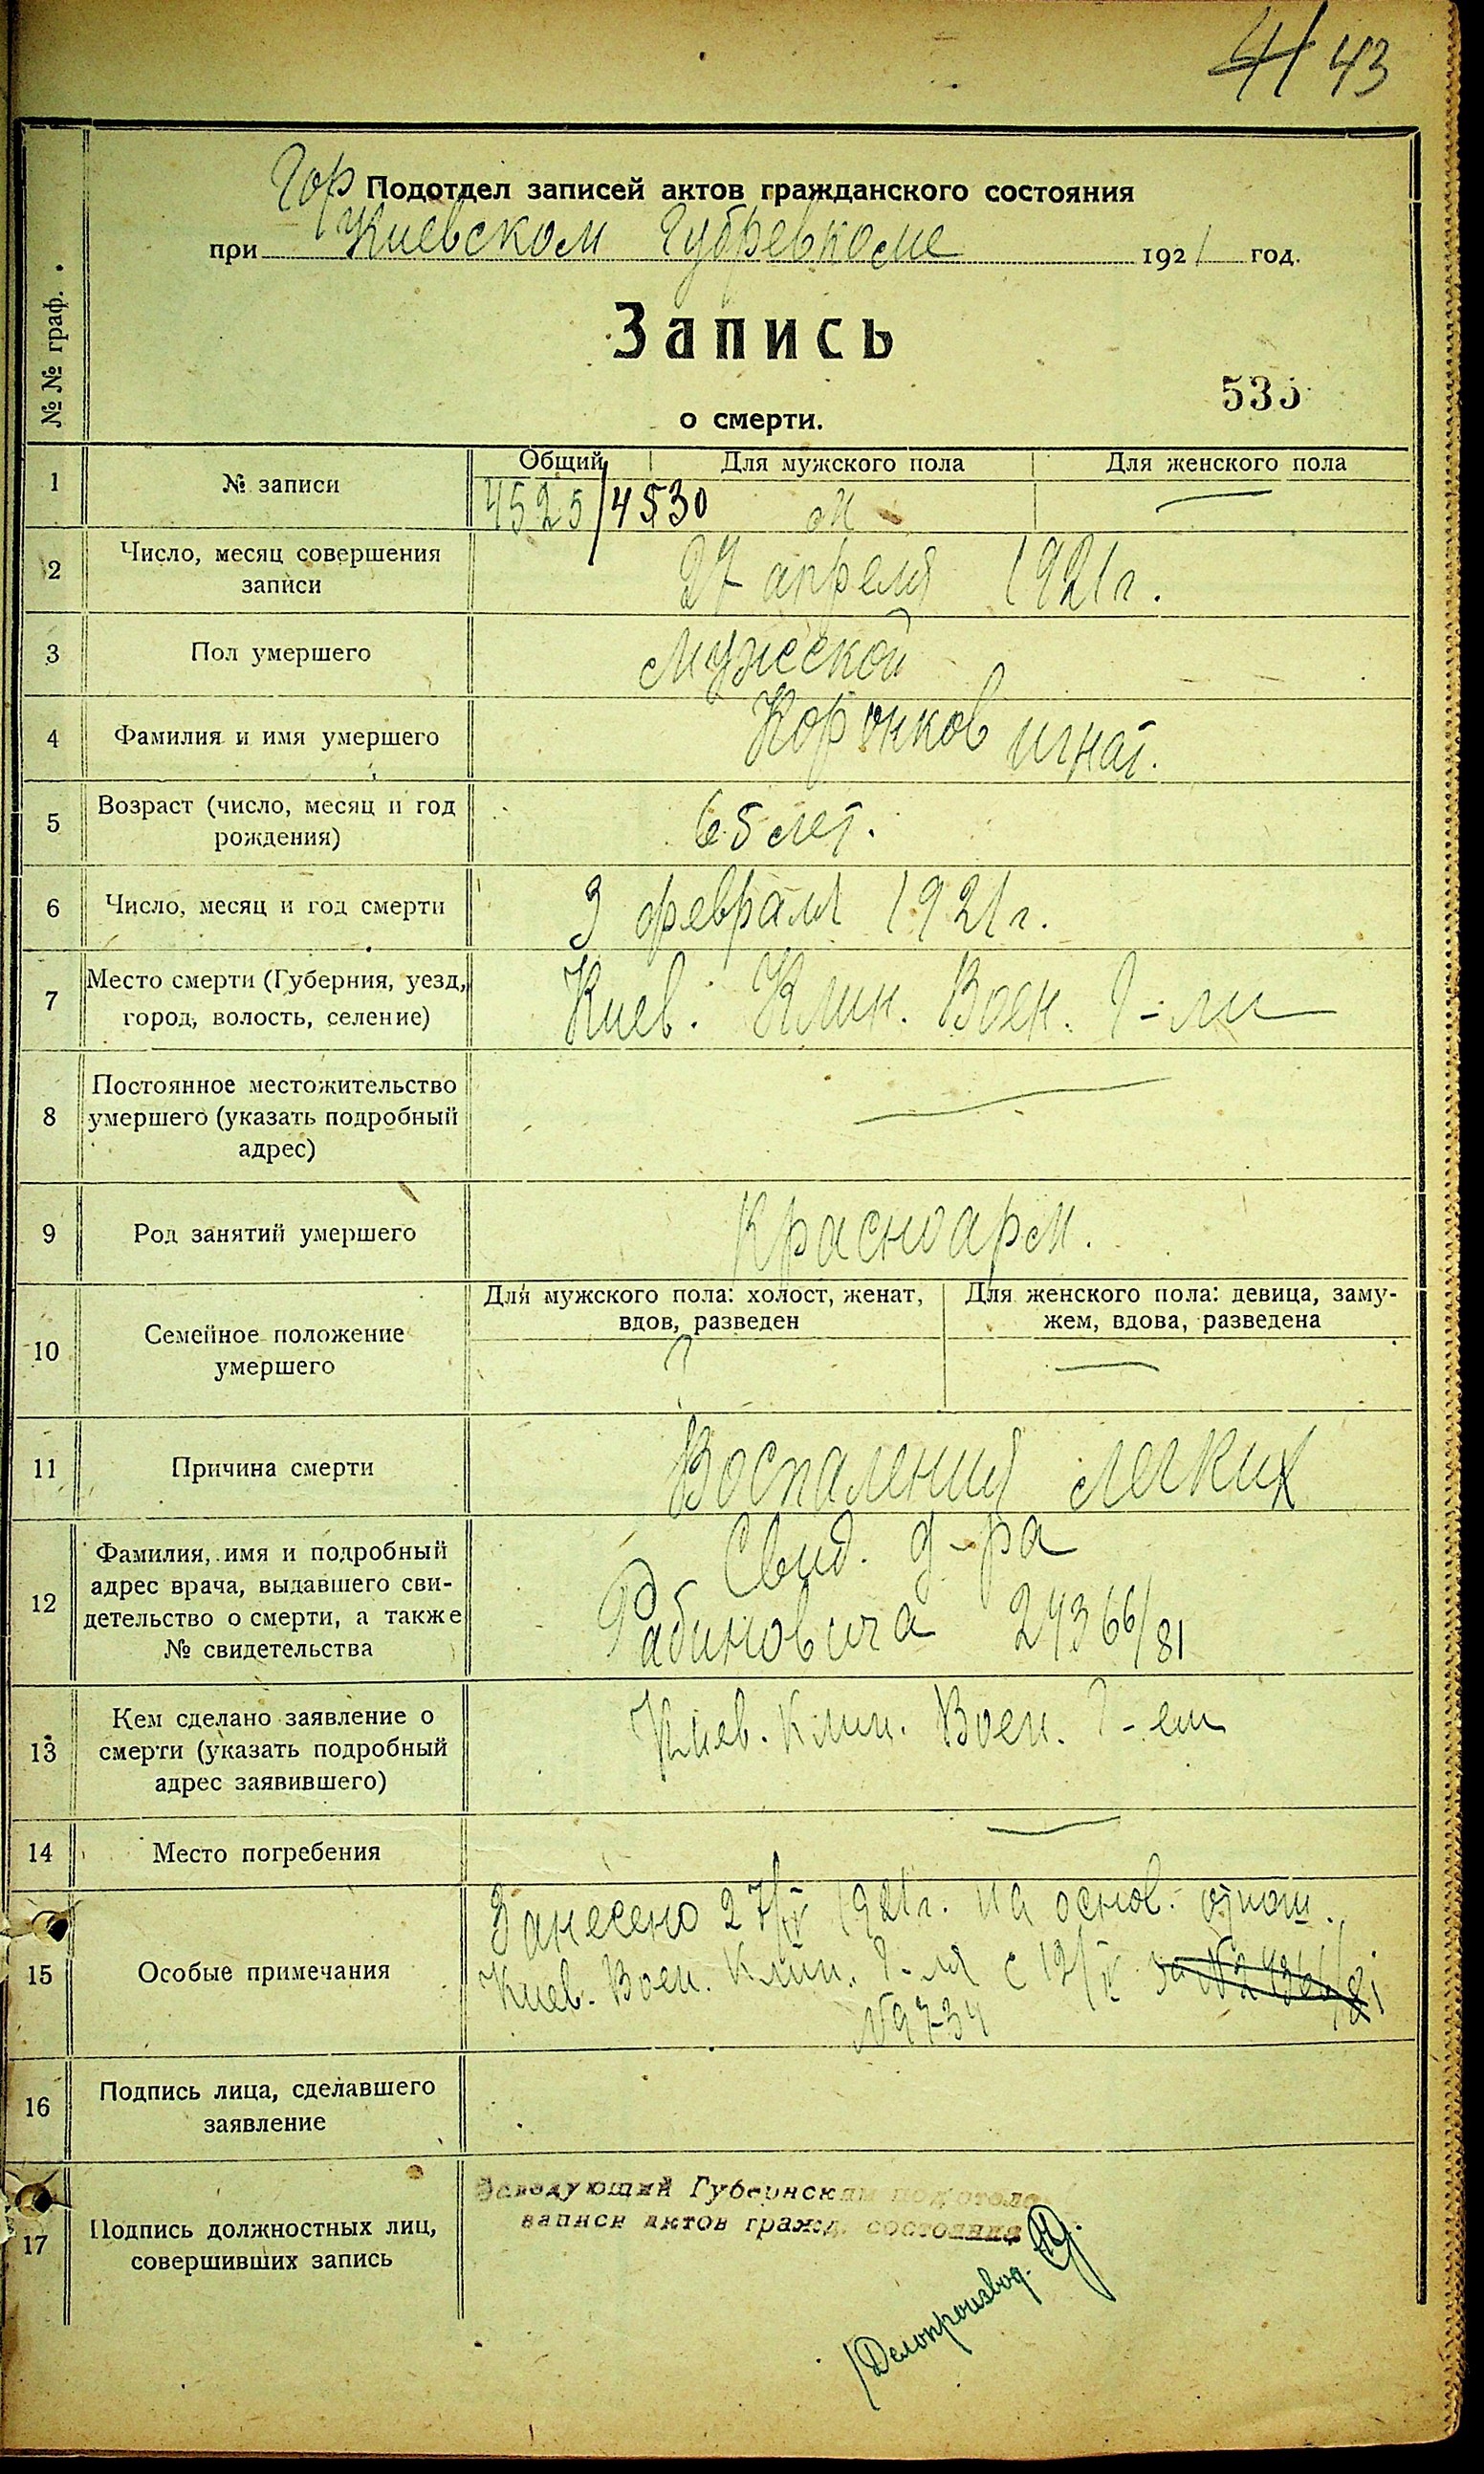 41 43
Гор Подотдел записей актов гражданского состояния
при Киевском Губревкоме 1921 год.
Запись
о смерти.
535
№№ граф.
1 № записи
Общий Для мужского пола Для женского пола
4525/4530 М —
2 Число, месяц совершения
записи
27 апреля 1921 г.
3 Пол умершего
мужской
4 Фамилия и имя умершего
Коронков Игнат.
5 Возраст (число, месяц и год
рождения)
65 лет.
6 Число, месяц и год смерти
3 февраля 1921 г.
7 Место смерти (Губерния, уезд,
город, волость, селение)
Киев. Клин. Воен. Г-ли
8 Постоянное местожительство
умершего (указать подробный
адрес)
—
9 Род занятий умершего
Красноарм.
10 Семейное положение
умершего
Для мужского пола: холост, женат,
вдов, разведен
Для женского пола: девица, заму-
жем, вдова, разведена
? —
11 Причина смерти
Воспаления легких
12 Фамилия, имя и подробный
адрес врача, выдавшего сви-
детельство о смерти, а также
№ свидетельства
Свид. д-ра
Рабиновича 24366/81
13 Кем сделано заявление о
смерти (указать подробный
адрес заявившего)
Киев. Клин. Воен. Г-ем
14 Место погребения
—
15 Особые примечания
Занесено 27/IV 1921 г. на основ. отнош.
Киев. Воен. Клин. Г-ля с 12/IV за № 24366/81
№ 9734
16 Подпись лица, сделавшего
заявление
17 Подпись должностных лиц,
совершивших запись
Заведующий Губернским подотдело
записи актов гражд. состояния
Делопроизвод.